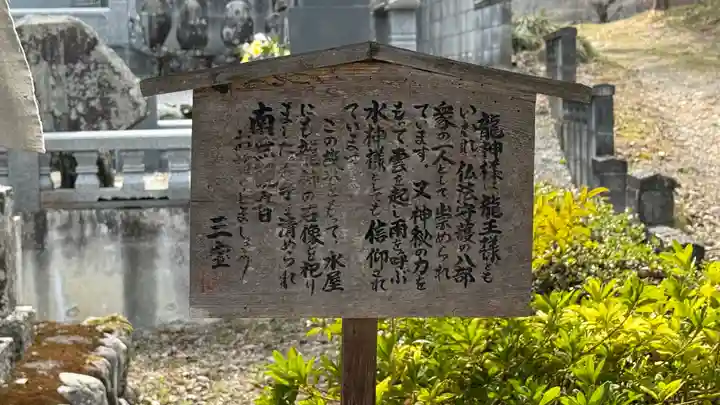 龍神様は龍王様とも
いわれ、仏法守護の八部
衆の一人として崇められ
ています。又神秘の力を
もって雲を起し雨を呼ぶ
水神様としても信仰され
ています。
この
もって、水屋
にも龍神の石像を祀り
ました。
を清められ
お
しましょう
南無
三霊